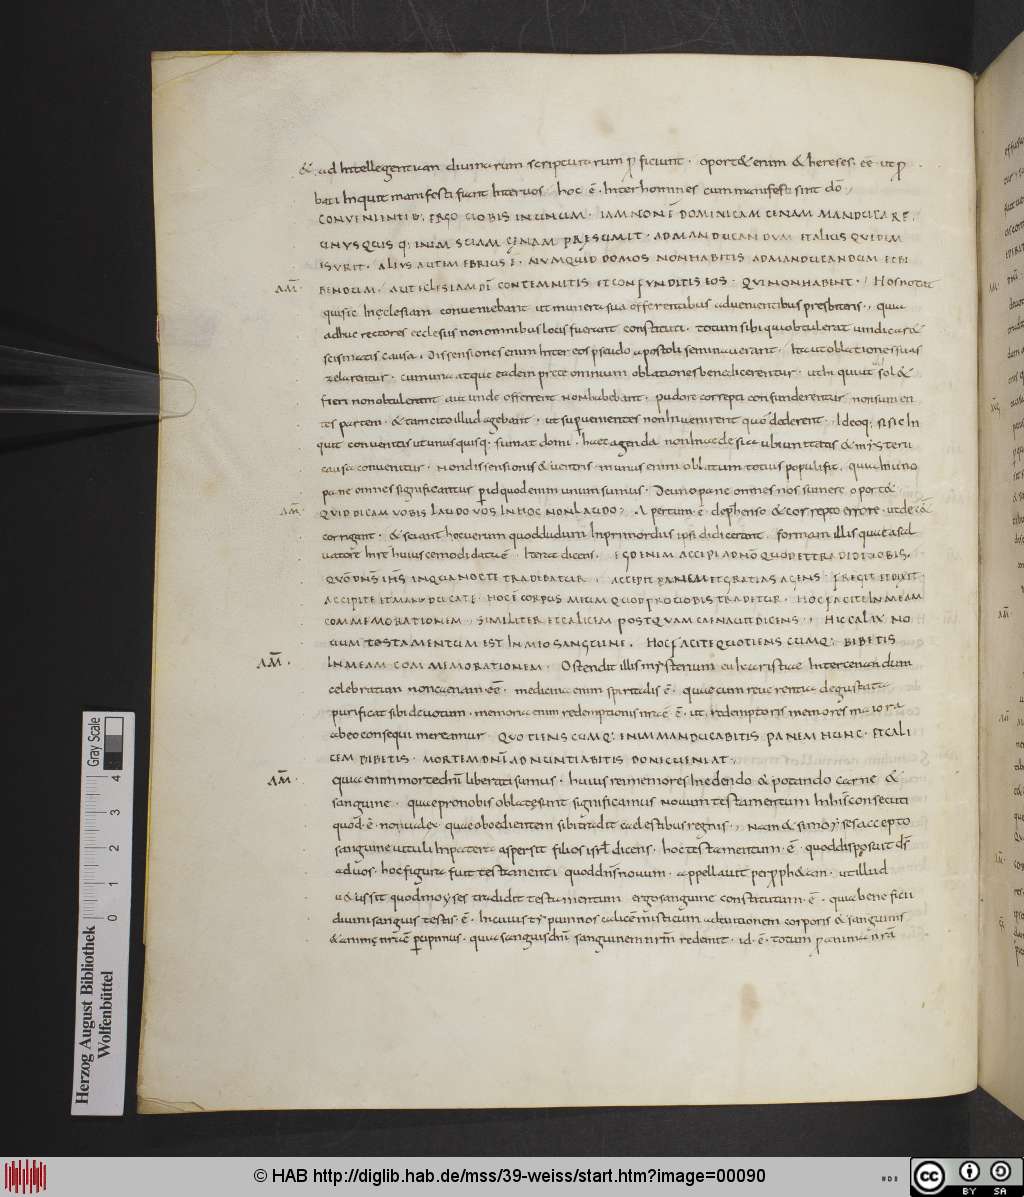 & ad intellegentiam divinarum scripturarum ꝓficiunt · oport& enim & hereses ee ut ꝓ
bati inquit manifesti fiant inter vos hoc ē · inter homines cum manifesti sint dō
CONVENIENTIB; ERGO VOBIS IN UNUM · IAM NON Ē DOMINICAM CENAM MANDUCARE ·
UNUSQUISQ; ENIM SUAM CENAM PRESUMIT · AD MANDUCANDUM ET ALIUS QUIDEM
ESURIT · ALIUS AUTEM EBRIUS Ē · NUMQUID DOMOS NON HABITIS AD MANDUCANDUM ET BI
AM̄ · BENDUM / AUT ECLESIAM DĪ CONTEMNITIS ET CONFUNDITIS EOS · QUI NON HABENT / Hos notat
qui sic in eclesiam conveniebant ut munera sua offerentibus advenientibus presbiteris · quia
adhuc rectores eclesiis non omnibus locis fuerant constituti · totum sibi qui obtulerat vindicar&
scismatis causa · Dissensiones enim inter eos pseudo apostoli seminaverant · Ita ut oblationes suas
zelarentur · cum una atque eadem prece omnium oblationes benedicerentur · ut hi qui ut sol&
fieri non obtulerant aut unde offerrent non habebant · pudore correpti confunderentur non sumen
tes partem · & tam cito illud agebant · ut supervenientes non invenirent quod ederent · Ideoq; si sic in
quit convenitis ut unusquisq; sumat domi · haec agenda non in aeclesia ubi unitatis & mysterii
causa convenitur · Non dissensionis & ventris · munus enim oblatum totius populi fit · quia in uno
pane omnes significantur ꝑ id quod enim unum sumus · De uno pane omnes nos sumere oport&
AM̄ · QUID DICAM VOBIS LAUDO VOS IN HOC NON LAUDO · Apertum · ē · dephenso & correpto errore · ut de c&
corrigant · & sciant hoc verum quod dudum in primordiis ipsi didicerant · formam illis quae a sal
vatore in re huius cemodi data ē iterat dicens · EGO ENIM ACCEPI A DNŌ QUOD ET TRADIDI VOBIS ·
QUŌ DNS IHS IN QUA NOCTE TRADEBATUR · ACCEPIT PANEM ET GRATIAS AGENS · FREGIT ET DIXIT
ACCIPITE ET MANDUCATE · HOC Ē CORPUS MEUM QUOD PRO VOBIS TRADETUR · HOC FACITE IN MEAM
COMMEMORATIONEM · SIMILITER ET CALICEM POSTQUAM CAENAVIT DICENS · HIC CALIX NO
VUM TESTAMENTUM EST IN MEO SANGUINE · HOC FACITE QUOTIENSCUMQ; BIBETIS
AM̄ · IN MEAM COMMEMORATIONEM · Ostendit illis mysterium eukaristiae inter cenandum
celebratum non cenam ee · medicina enim spiritalis ē · quae cum reverentia degustata
purificat sibi devotum · memoria enim redemptionis nrae ē · ut redemptoris memores maiora
ab eo consequi mereamur QUOTIENSCUMQ; ENIM MANDUCABITIS PANEM HUNC · ET CALI
CEM BIBETIS · MORTEM DNI ADNUNTIABITIS DONEC VENIAT ·
AM̄ · quia enim morte dnī liberati sumus · huius rei memores in edendo & potando carne &
sanguine · quae pro nobis oblata sunt significamus novum testamentum in his consecuti
quod · ē · nova lex quae oboedientem sibi tradit caelestibus regnis · nam & simoyses accepto
sanguine vituli in patera aspersit filios isrl dicens · hoc testamentum · ē · quod disposuit ds
ad vos · hoc figura fuit testamenti quod dns novum · appellavit per proph&am · ut illud
v&us sit quod moyses tradidit testamentum ergo sanguine constitutum · ē · quia beneficii
divini sanguis testis · ē · In cuius typum nos calicem misticum ad tuitionem corporis & sanguinis
& animę nrae ꝑcipimus · quia sanguis dnī sanguinem nrm̄ redemit · id · ē · totum ꝑ anima nrā
Herzog August Bibliothek
Wolfenbüttel
0 1 2 3 4
Gray Scale
© HAB http://diglib.hab.de/mss/39-weiss/start.htm?image=00090
cc BY SA